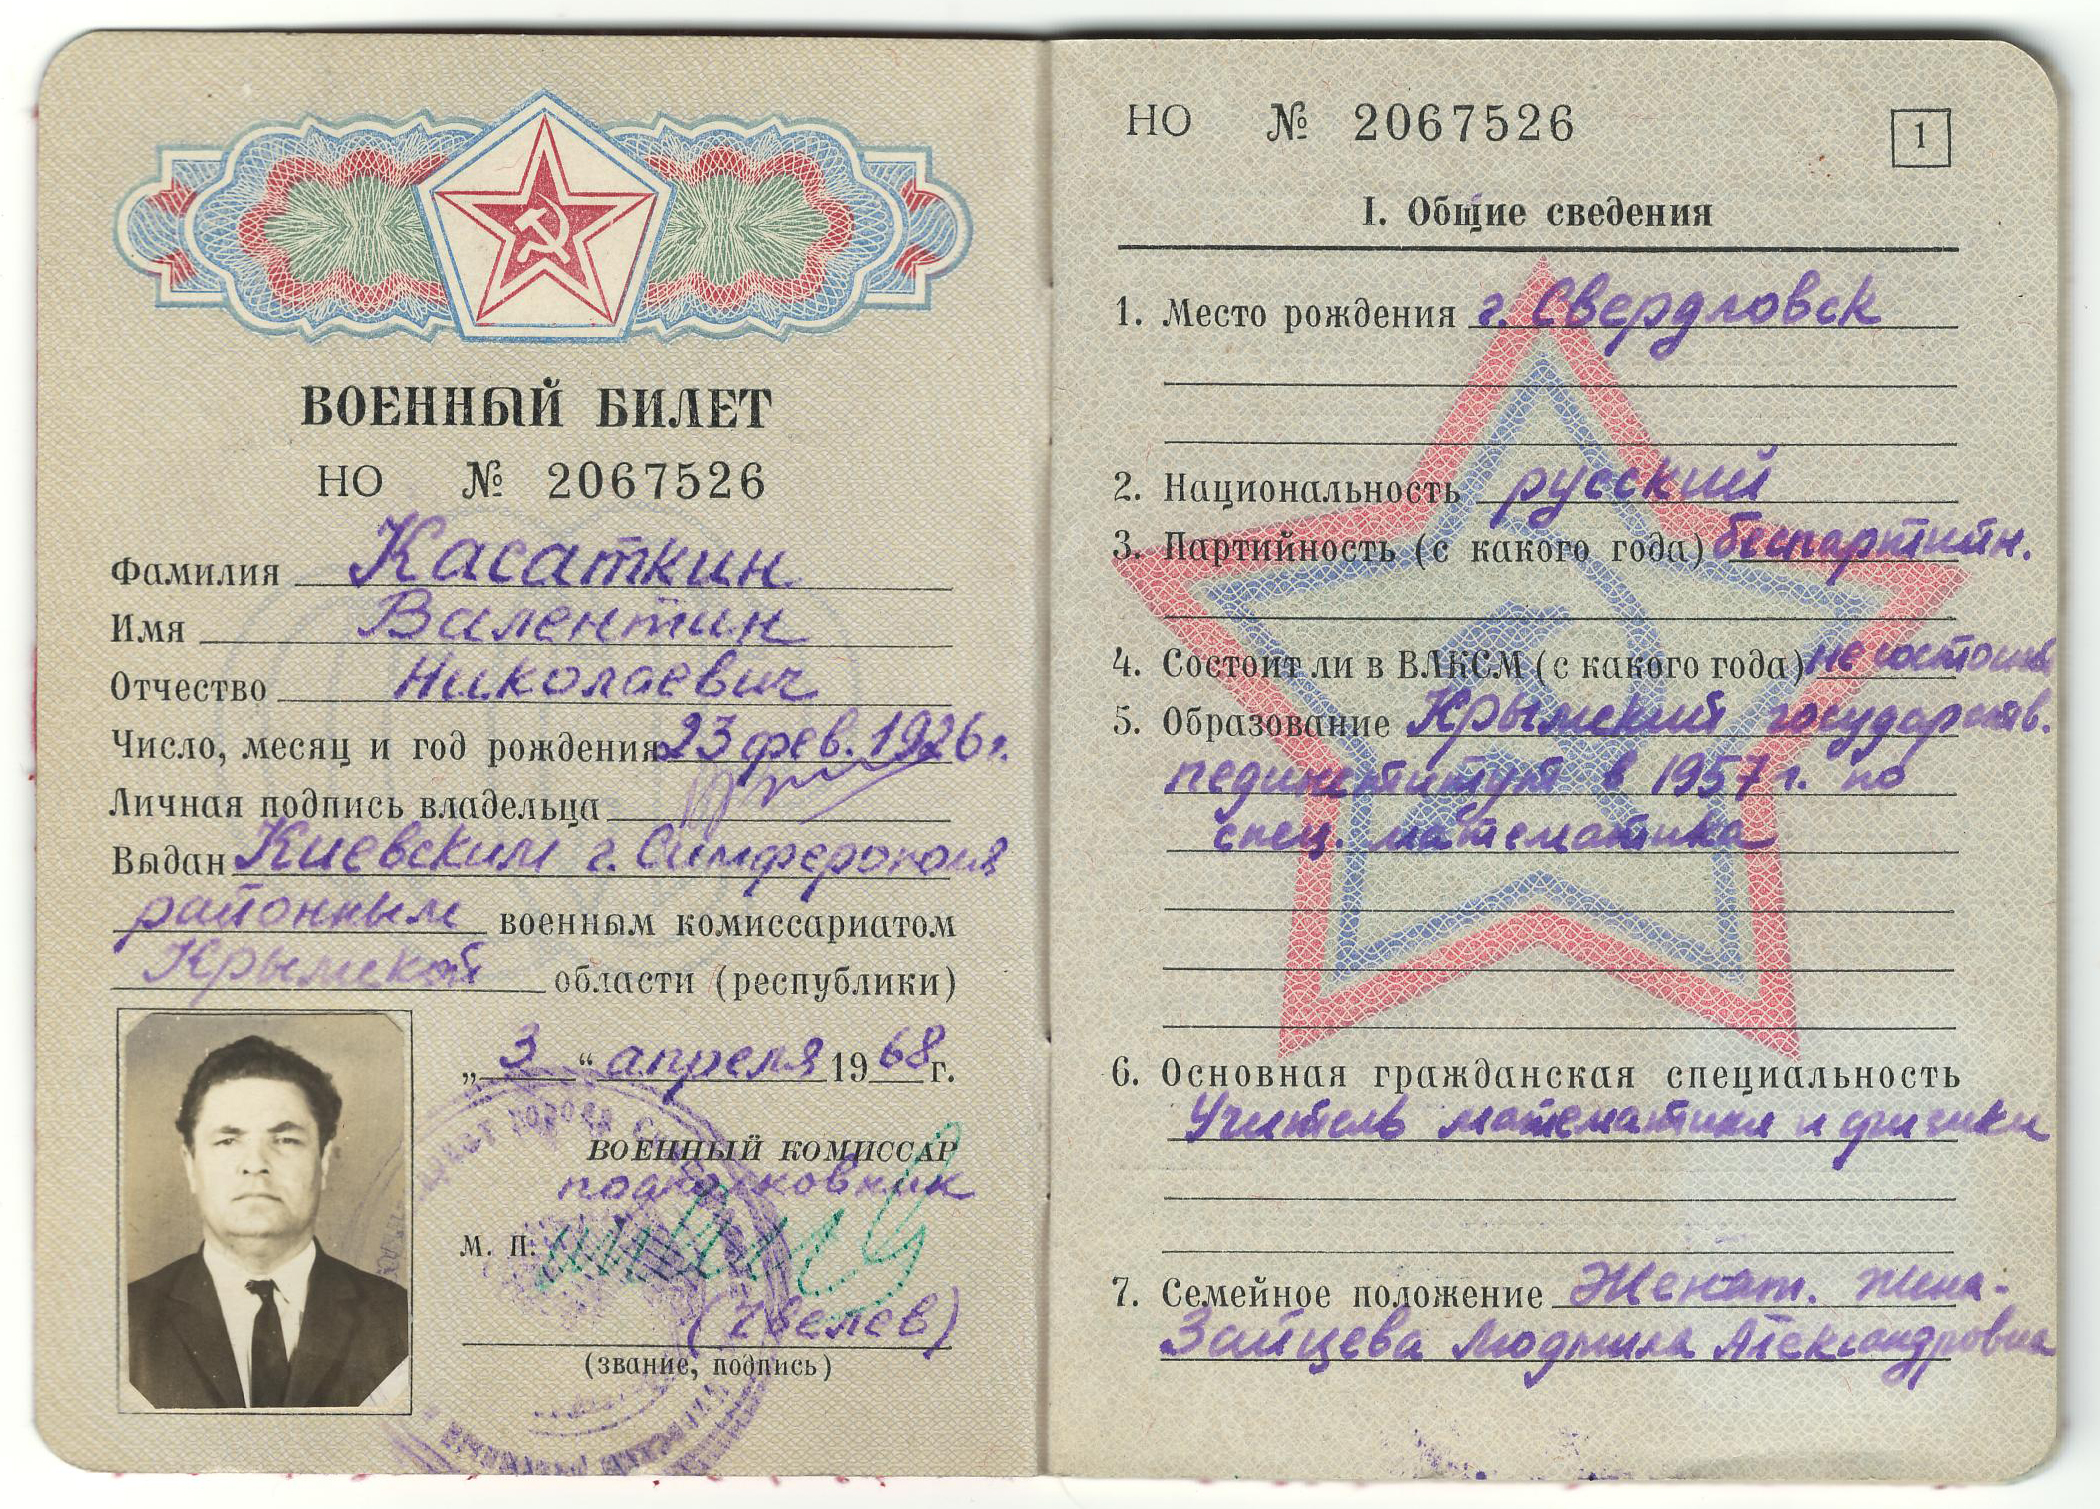 ВОЕННЫЙ БИЛЕТ
НО № 2067526
Фамилия Касаткин
Имя Валентин
Отчество Николаевич
Число, месяц и год рождения 23 фев. 1926 г.
Личная подпись владельца
Выдан Киевским г. Симферополя
районным военным комиссариатом
Крымской области (республики)
„3“ апреля 1968 г.
ВОЕННЫЙ КОМИССАР
подполковник
М. П.
(звание, подпись)
НО № 2067526
1
I. Общие сведения
1. Место рождения г. Свердловск
2. Национальность русский
3. Партийность (с какого года) беспартийн.
4. Состоит ли в ВЛКСМ (с какого года) не состоит
5. Образование Крымский государств.
пединститут в 1957 г. по
спец. математика
6. Основная гражданская специальность
Учитель математики и физики
7. Семейное положение Женат. жена-
Зайцева Людмила Александровна